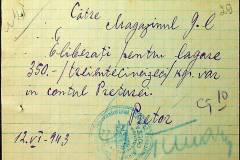 Către
Magazinul J.C
Eliberați pentru lagare
350.-/treisutecincizeci/ kgr. var
in contul Preturei.
Pretor
12.VI-943